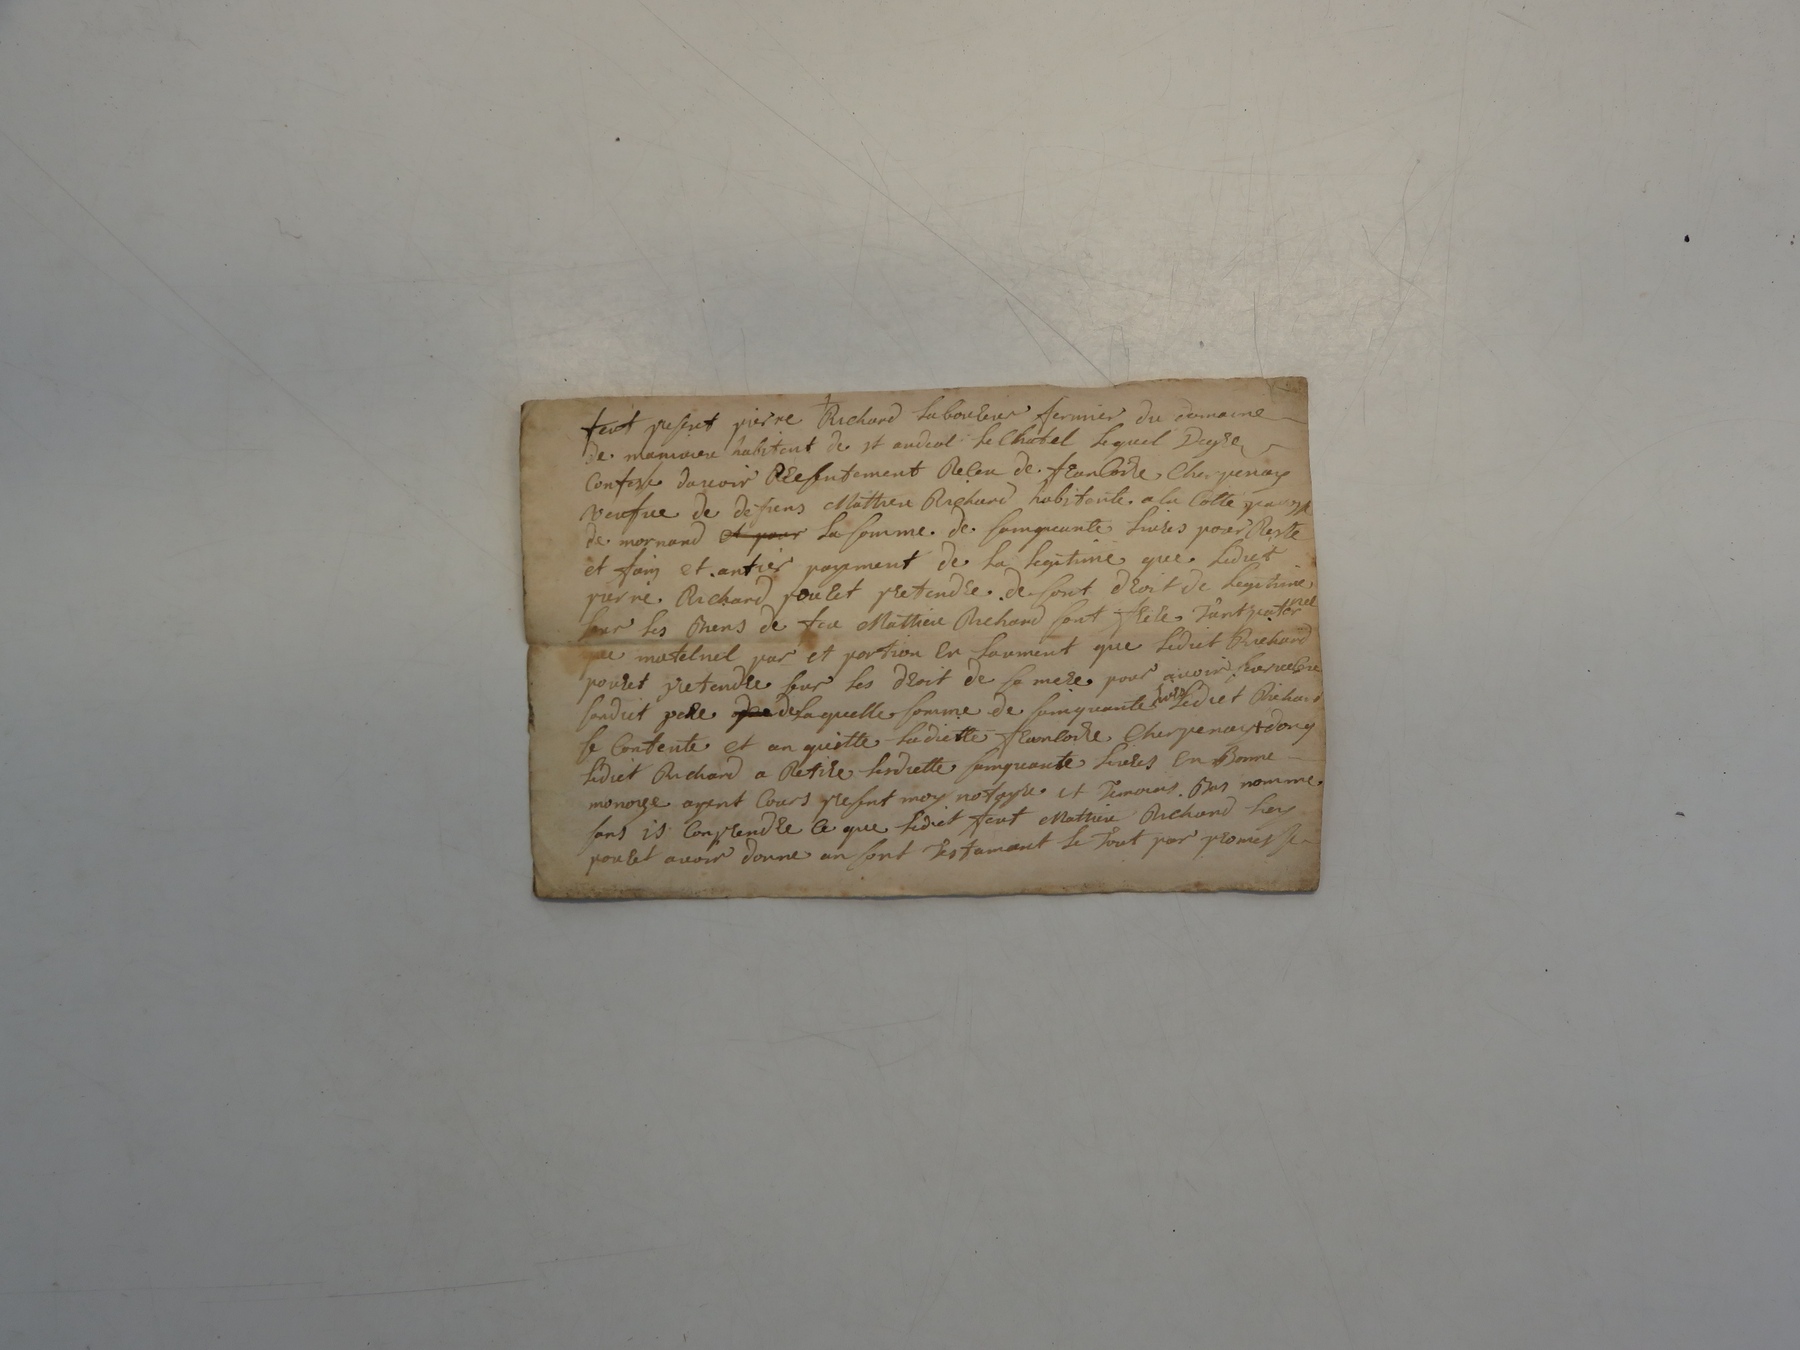 feut present pierre Richard laboureur fermier du domaine
de habitent de st andeol le Chatel lequel Degre
Confese davoir Presentement Receu de francoise Cherpenay
veufue de defiens Mathieu Richard habitente a la Cotte
de mornand et pour la somme de sainquante livres pour Reste
et fain et antier payement de la legitime que ledict
pierre Richard pouret pretendre de sont droit de legitime
seur les Biens de feu Mathieu Richard sont frere Tant paternel
que maternel par et portion En laument que ledict Richard
pouret pretendre seur les droit de sa mere pour avoir
sondict pere de laquelle somme de sainquante livres ledict Richard
se Contente et an quitte ladictte francoise Cherpenay + donq
ledict Richard a Retire lesdictte sainquante livres En Bonne
monoye ayent Cours present moy notayre et Temoins Bas nomme
sans is Conprendre Ce que ledict feut Mathieu Richard luy
pouret avoir donne an sont Testamant le Tout par promesse